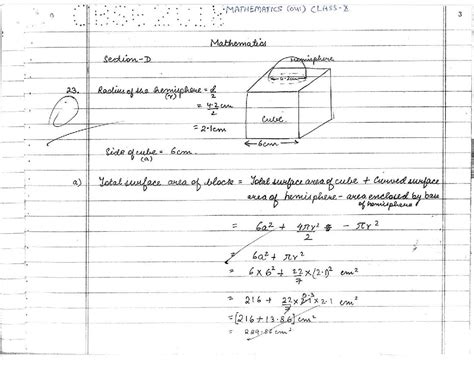 CBSE 2018 - MATHEMATICS (041) CLASS-X
3
Mathematics
Section-D
Hemisphere
23. Radius of the hemisphere = d/2
(r)
= 4.2/2 cm
= 2.1cm
4.2cm
Cube
6cm
Side of cube = 6cm.
(a)
a) Total surface area of block = Total surface area of cube + Curved surface
area of hemisphere - area enclosed by base
of hemisphere
= 6a² + 4πr²/2 - πr²
= 6a² + πr²
= 6 x 6² + 22/7 x (2.1)² cm²
= 216 + 22/7 x 2.1 x 2.1 cm²
0.3
= [216 + 13.86] cm²
= 229.86 cm²